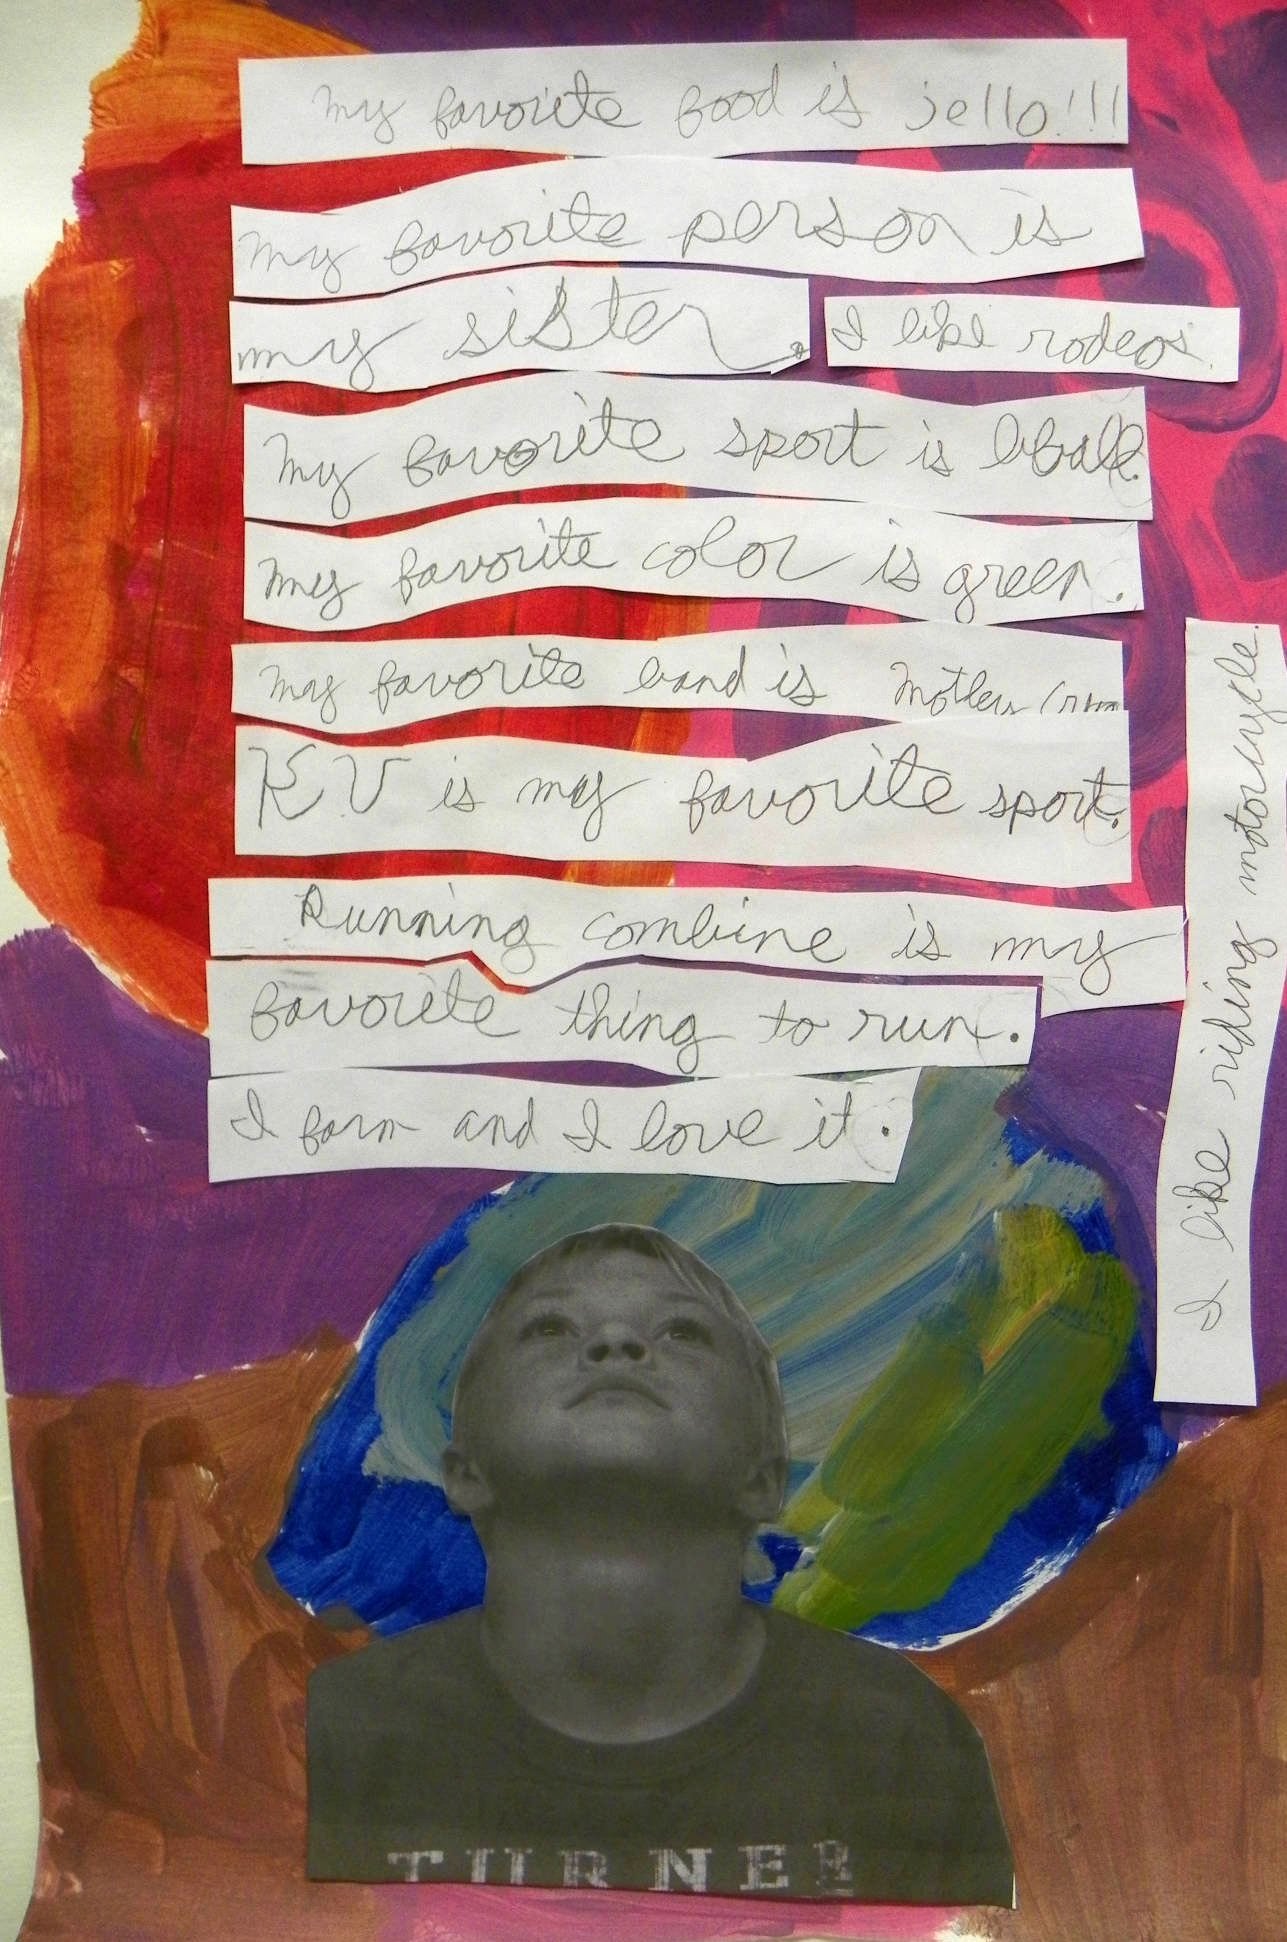 My favorite food is jello!!!
My favorite person is
my sister.
I like rodeos.
My favorite sport is bball.
My favorite color is green.
My favorite band is Motley
KV is my favorite sport.
Running combine is my
favorite thing to run.
I farm and I love it.
I like riding motorcycle.
TURNER